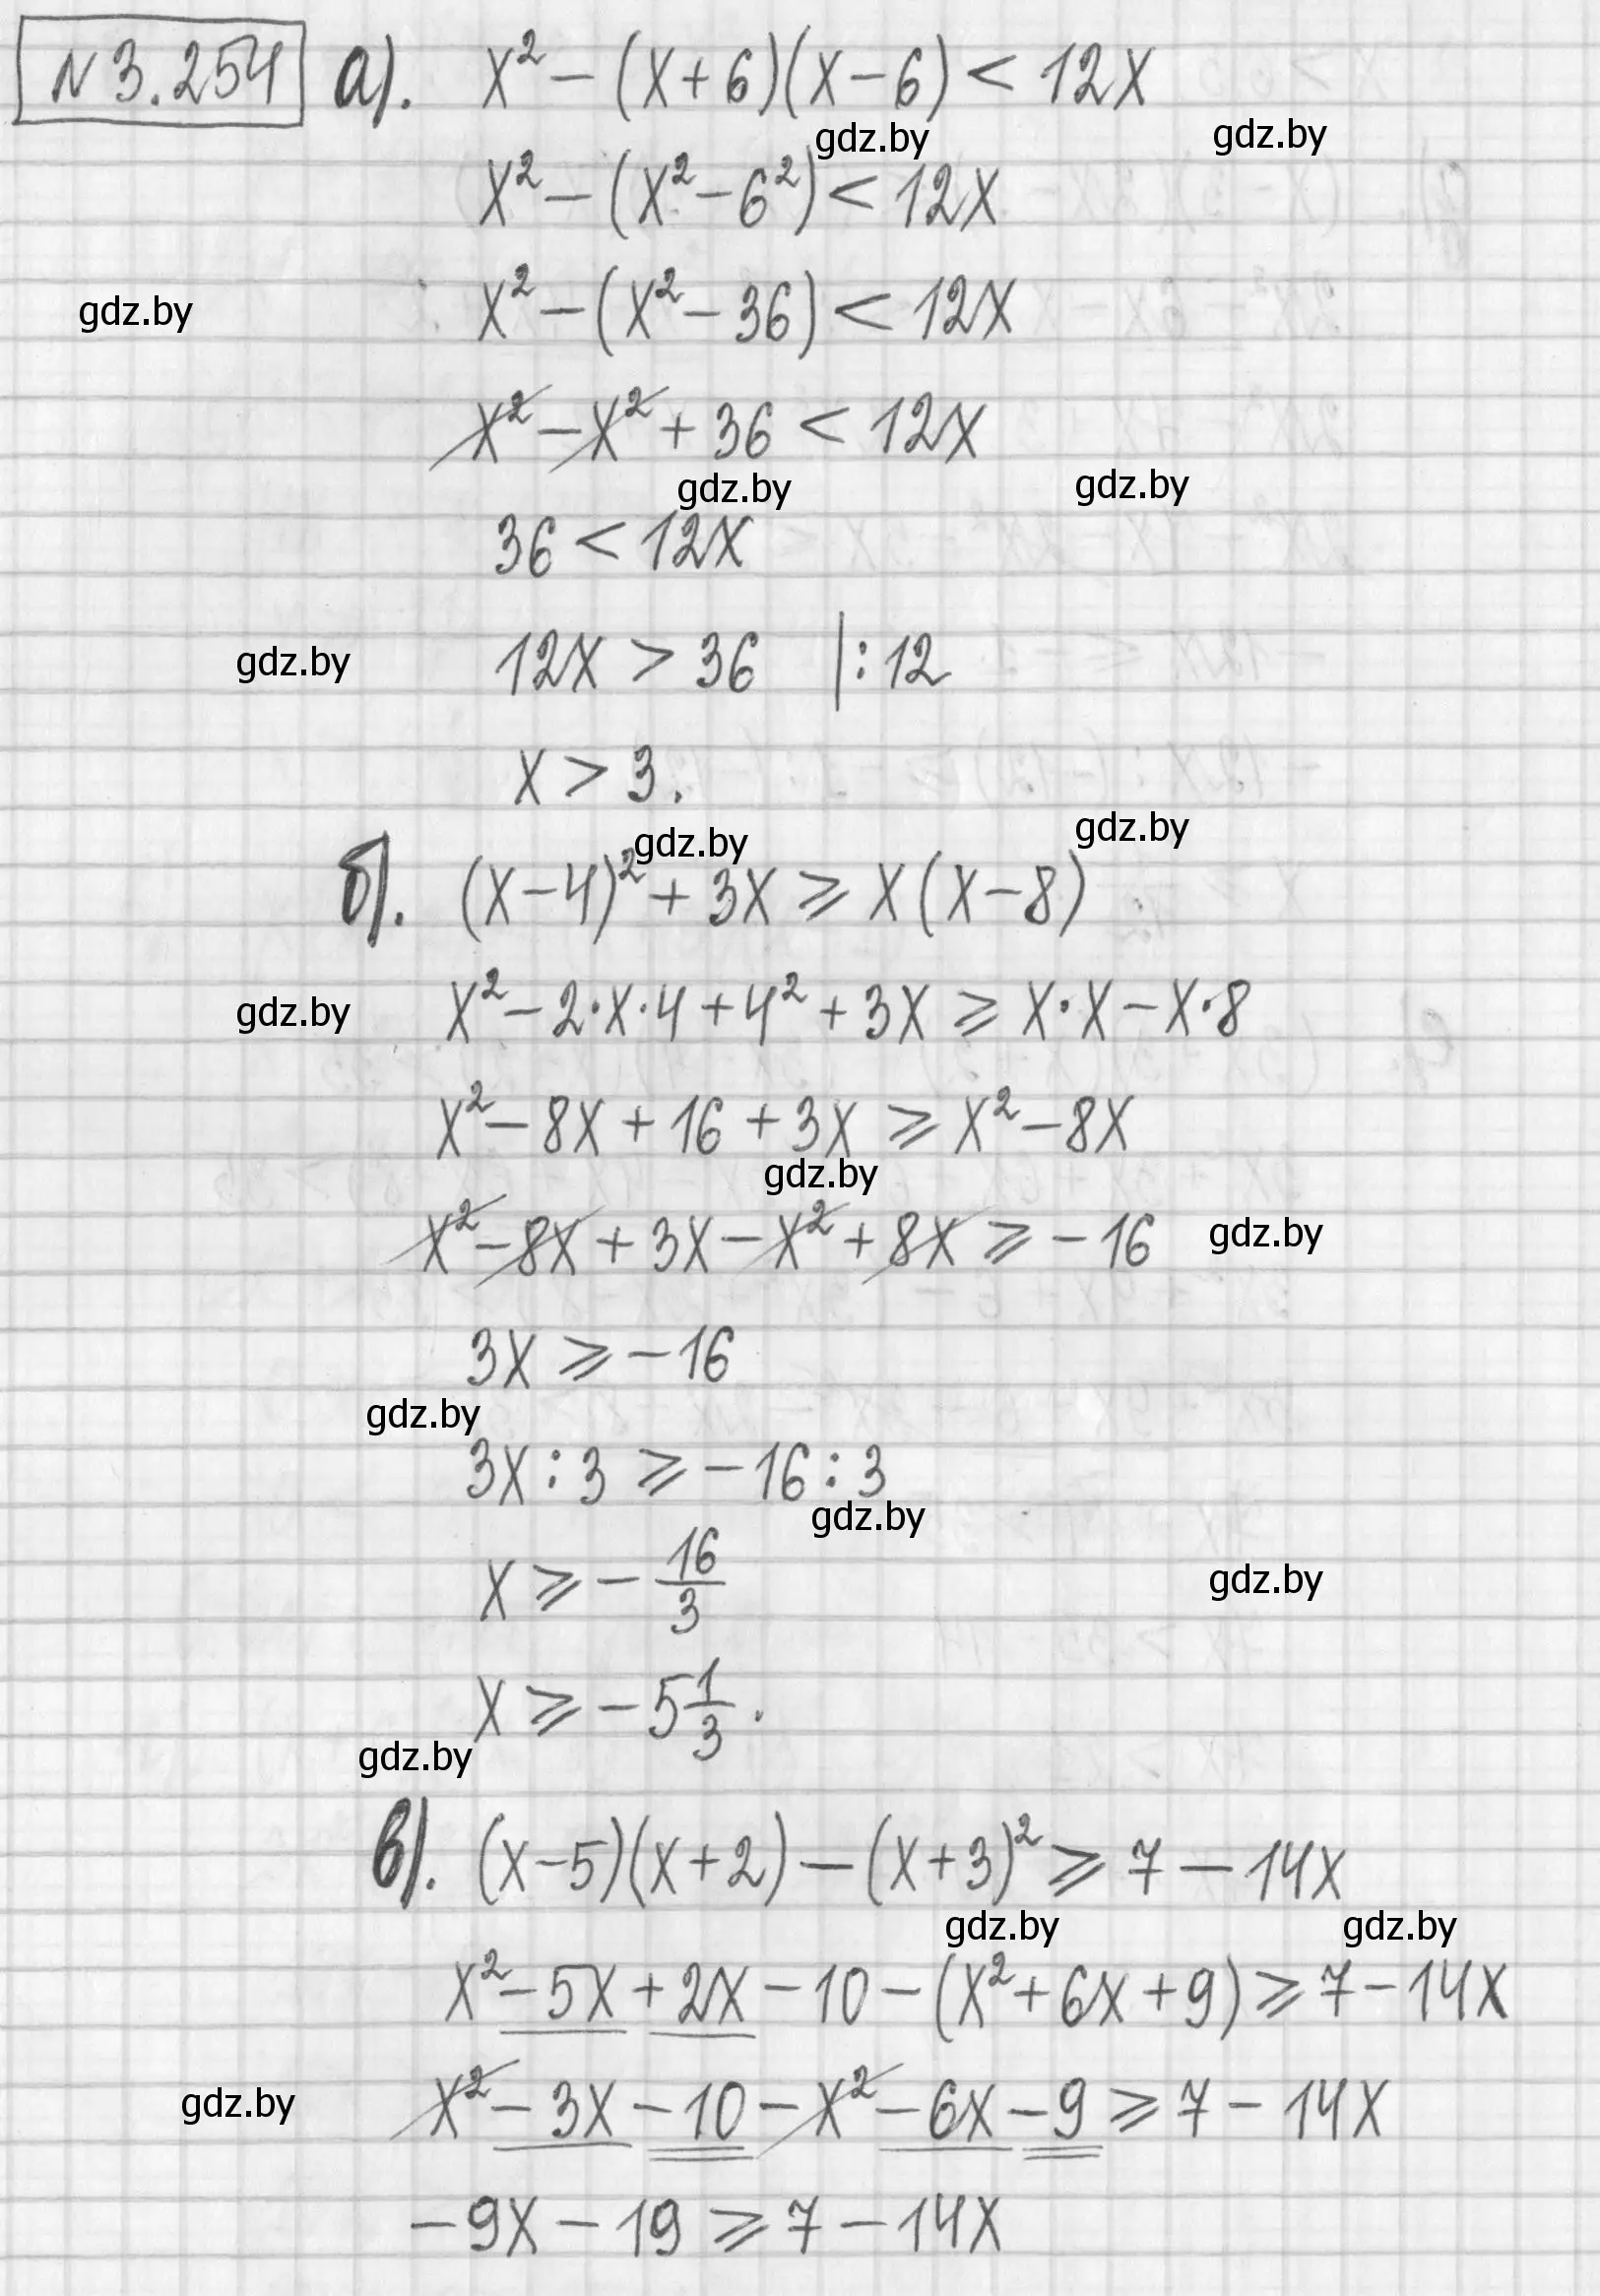 N 3.254 а). x² − (x + 6)(x − 6) < 12x
gdz.by gdz.by
x² − (x² − 6²) < 12x
gdz.by x² − (x² − 36) < 12x
x² − x² + 36 < 12x
gdz.by gdz.by
36 < 12x
gdz.by 12x > 36 |: 12
x > 3.
gdz.by gdz.by
б). (x − 4)² + 3x ⩾ x(x − 8)
gdz.by x² − 2·x·4 + 4² + 3x ⩾ x·x − x·8
x² − 8x + 16 + 3x ⩾ x² − 8x
gdz.by
x² − 8x + 3x − x² + 8x ⩾ −16 gdz.by
3x ⩾ −16
gdz.by
3x : 3 ⩾ −16 : 3
gdz.by
x ⩾ −16/3 gdz.by
x ⩾ −5 1/3.
gdz.by
в). (x − 5)(x + 2) − (x + 3)² ⩾ 7 − 14x
gdz.by gdz.by
x² − 5x + 2x − 10 − (x² + 6x + 9) ⩾ 7 − 14x
gdz.by x² − 3x − 10 − x² − 6x − 9 ⩾ 7 − 14x
−9x − 19 ⩾ 7 − 14x